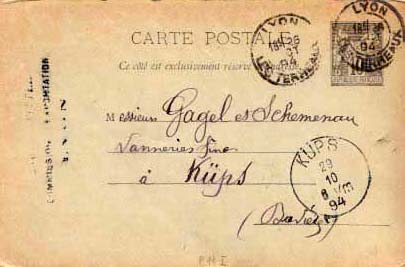 CARTE POSTALE
Ce côté est exclusivement réservé
LYON
94
LES TERREAUX
LYON
94
LES TERREAUX
COMMISSION EXPORTATION
Messieurs Gagel et Schemenau
Vanneries fines
à Küps
(Bavière)
KÜPS
29
10
8 Vm
94